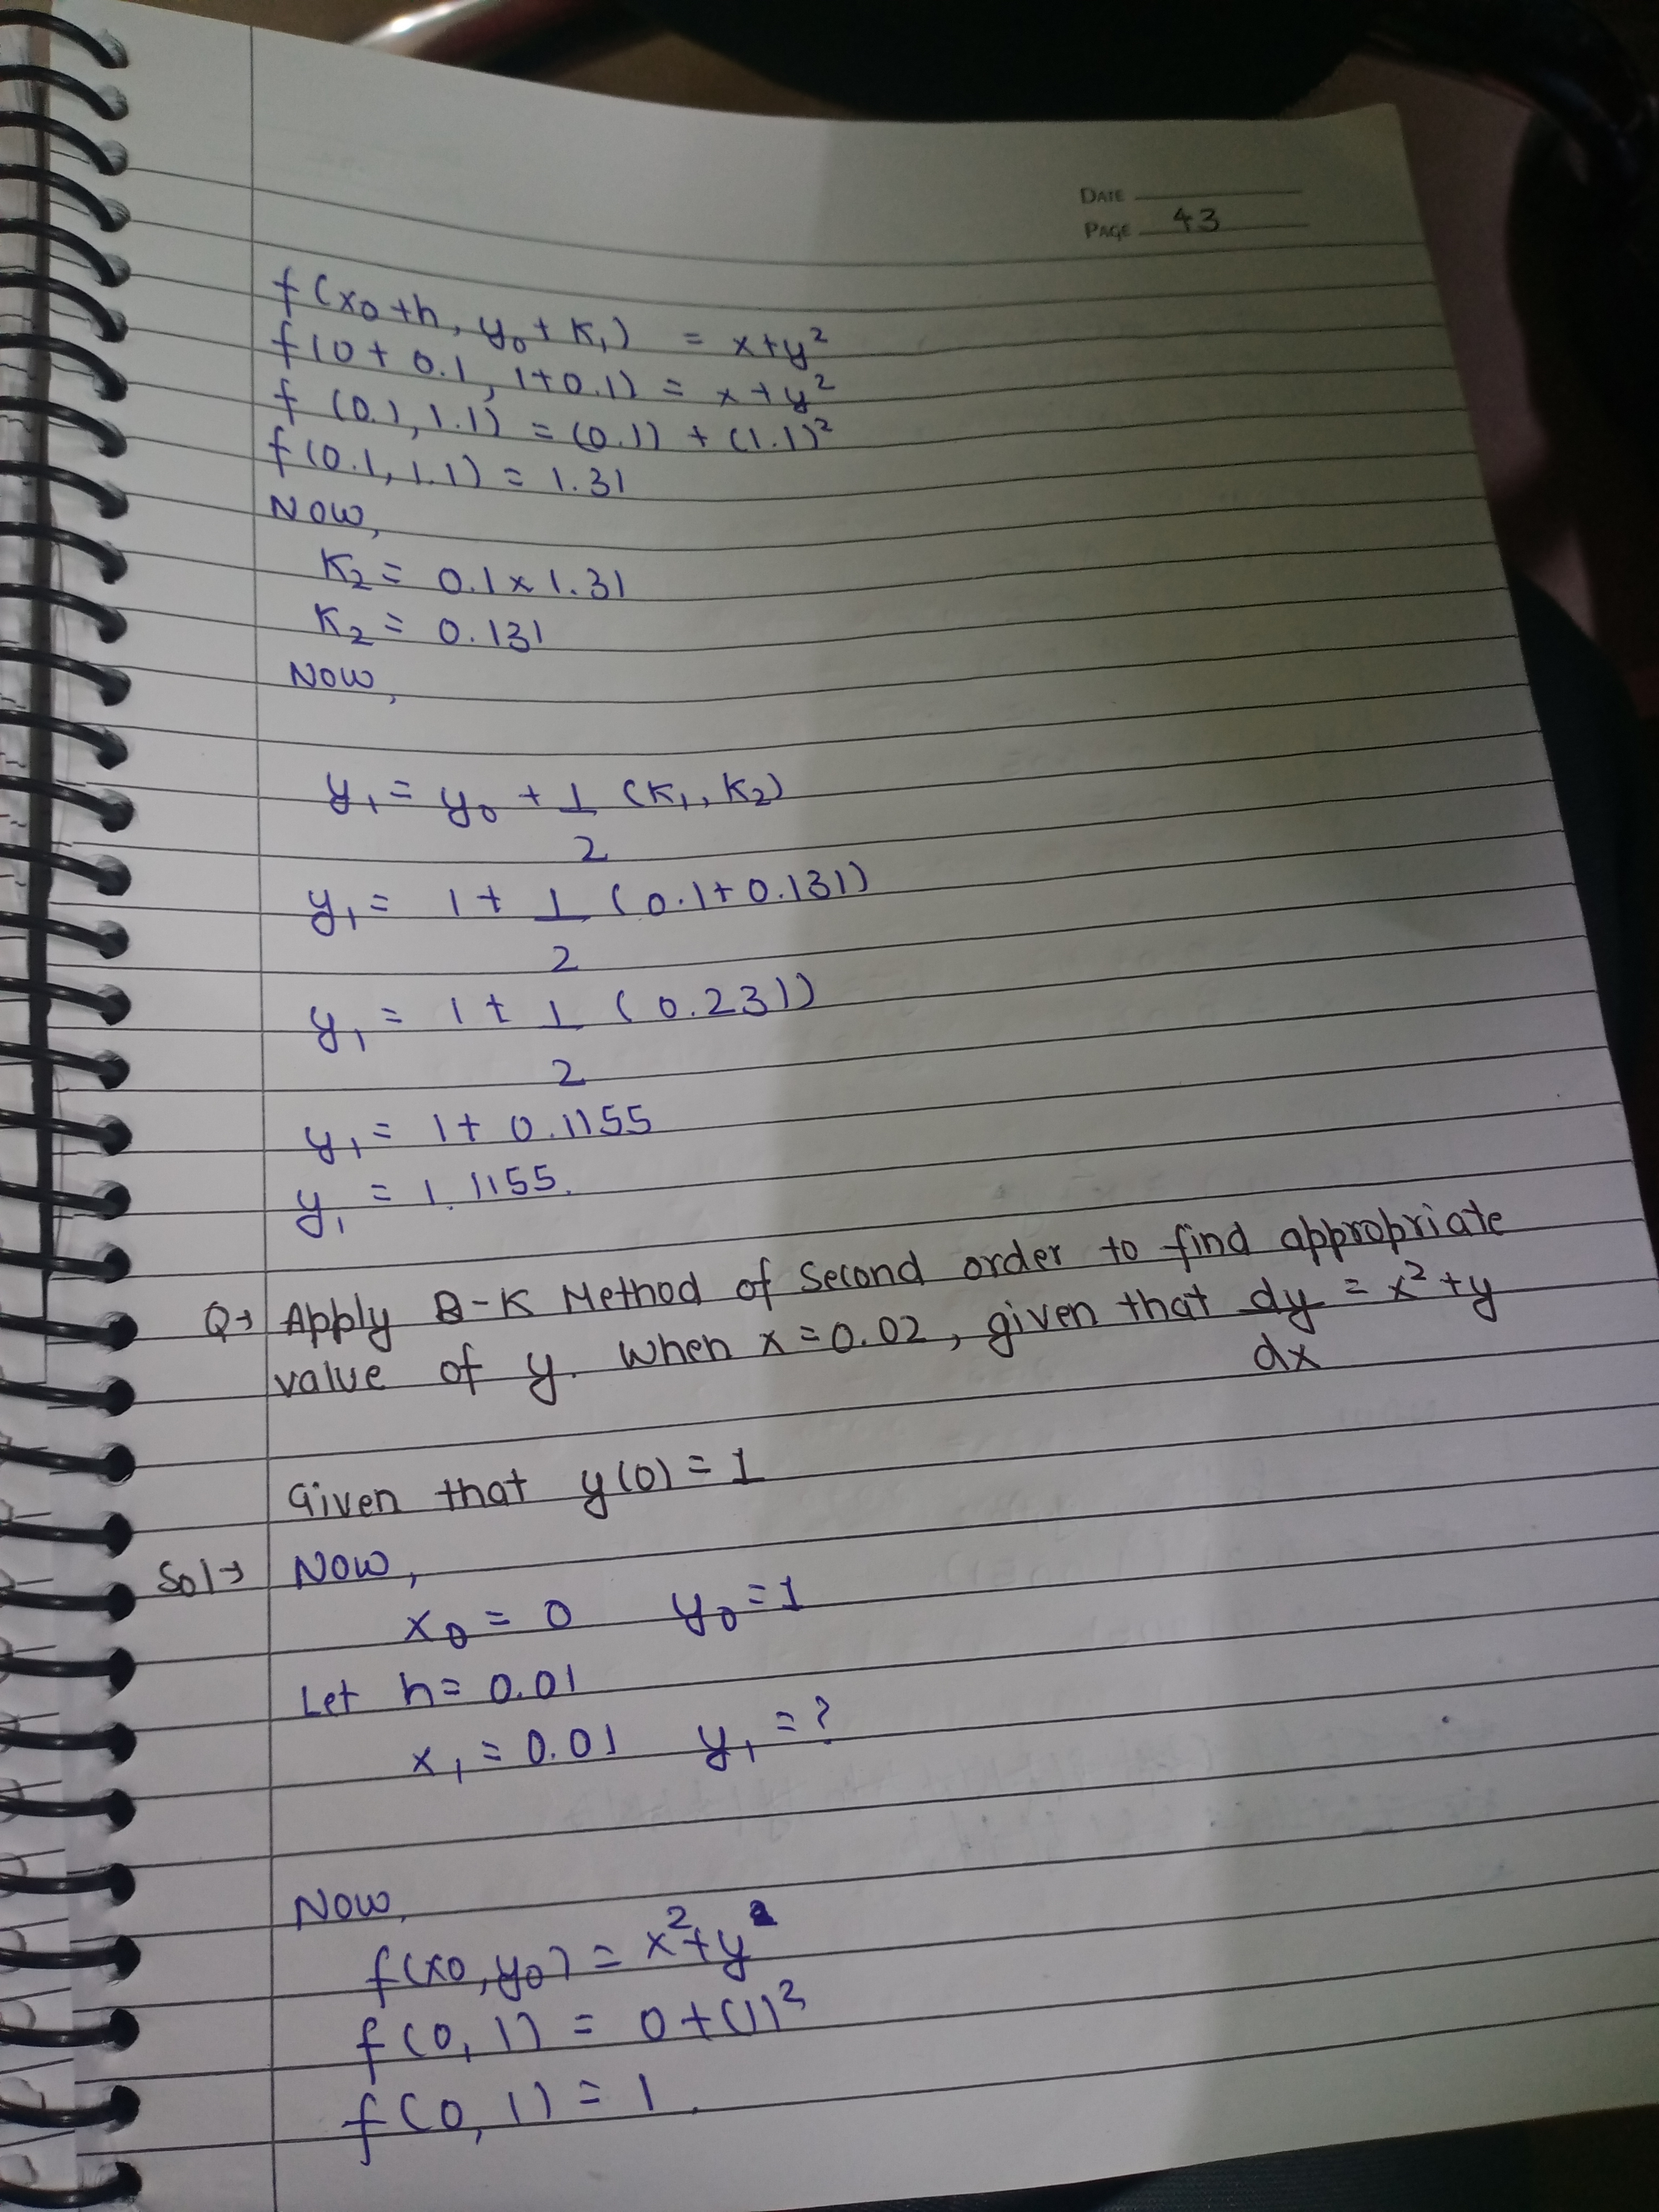 DATE
PAGE 43
f(x0+h, y0+K1) = x+y²
f(0+0.1, 1+0.1) = x+y²
f (0.1, 1.1) = (0.1) + (1.1)²
f(0.1, 1.1) = 1.31
Now,
K2 = 0.1 x 1.31
K2 = 0.131
Now,
y1 = y0 + 1/2 (K1, K2)
y1 = 1 + 1/2 (0.1+0.131)
y1 = 1 + 1/2 (0.231)
y1 = 1 + 0.1155
y1 = 1.1155.
Q→ Apply R-K Method of Second order to find appropriate
value of y. When x = 0.02, given that dy/dx = x²+y
Given that y(0) = 1
Sol→ Now,
x0 = 0 y0 = 1
Let h = 0.01
x1 = 0.01 y1 = ?
Now,
f(x0, y0) = x²+y
f(0, 1) = 0+(1)²
f(0, 1) = 1.